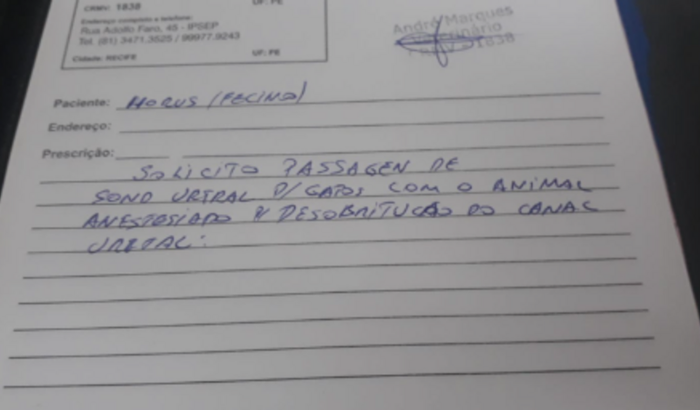 CRMV: 1838
UF: PE
Endereço completo e telefone:
Rua Adolfo Faro, 45 - IPSEP
Tel. (81) 3471.3525 / 99977.9243
Cidade: RECIFE UF: PE
André Marques
Veterinário
1838
Paciente: HORUS (FECINO)
Endereço:
Prescrição:
SOLICITO PASSAGEN DE
SOND URTRAL P/ GATOS COM O ANIMAL
ANESTESIADO P/ DESOBRITUCÃO DO CANAL
URETRAL.